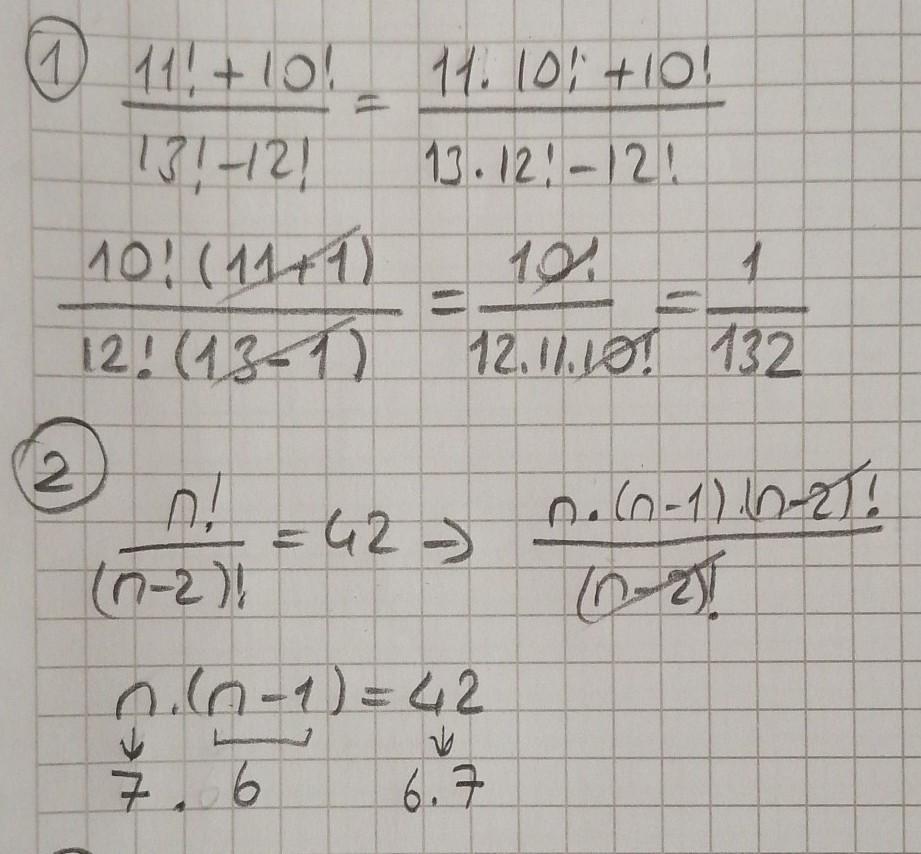 ① (11!+10!)/(13!-12!) = (11.10!+10!)/(13.12!-12!)
(10!(11+1))/(12!(13-1)) = (10!)/(12.11.10!) = 1/132
② n!/(n-2)! = 42 → (n.(n-1).(n-2)!)/(n-2)!
n.(n-1)=42
↓ ↓
7 . 6 6.7